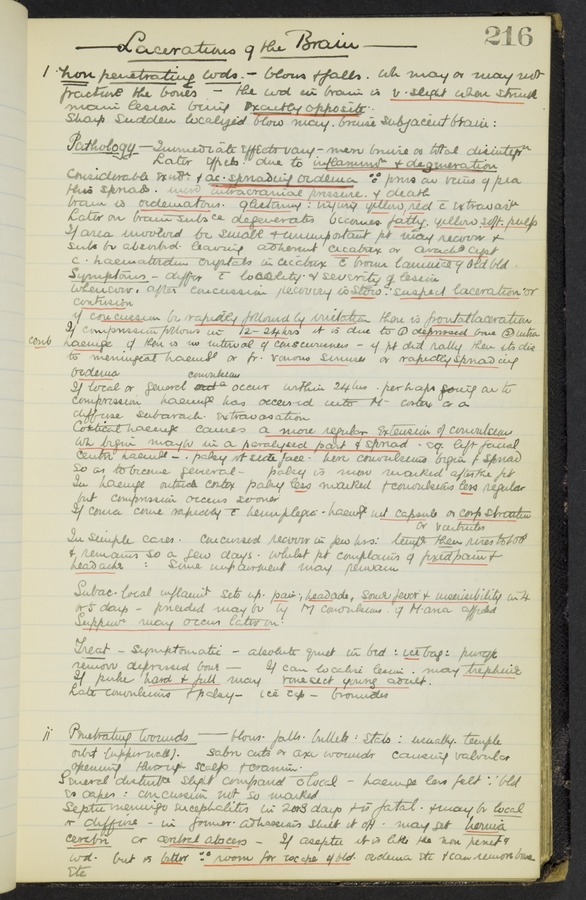 216
Lacerations of the Brain
1 Non penetrating wds. - blows & falls. wh may or may not
fracture the bones - the wd in brain is v. slight when struck
main lesion being exactly opposite.
Sharp sudden localized blow may bruise subjacent brain:
Pathology - Immediate effects vary - mere bruise or total disintegrn
Later effects due to inflammn & degeneration
Considerable & ac. spreading oedema ∵ press on veins of pia
this spreads. intracranial pressure. & death
brain is oedematous. glistening: yellow red c extravasn
Later on brain subsce degenerates becomes fatty, yellow soft. pulp
If area involved be small & unimportant pt may recover &
subs be absorbd leaving adherent cicatrix or arachd cyst
c. haematoidin crystals in cicatrix c brown laminae of old bld.
Symptoms - differ c locality & severity of lesion
whenever. after concussion recovery is slow. suspect laceration or
contusion
If concussion be rapidly followed by irritation there is frontal laceration
If compression follows in 12-24 hrs it is due to ① depressed bone ②
comb haemge if there is no interval of consciousness - if pt did rally then its due
to meningeal haemge or fr. venous sinuses or rapidly spreading
oedema
convulsions
If local or general occur within 24 hrs. perhaps going on to
compression haemge has occurred into M. cortex or a
diffuse subarach. extravasation
Cortical haemge causes a more regular extension of convulsions
wh begin maybe in a paralysed part & spread. eg. left facial
centre haemge - palsy of side face. here convulsions begin & spread
so as to become general - palsy is more marked after the fit
In haemge outside cortex palsy less marked & convulsions less regular
but compression occurs sooner
If coma come rapidly c hemiplegia. haemge int capsule or corp striatum
or ventricles
In simple cases. concussed recover in few hrs: tempr then rises to 100°
& remains so a few days. whilst pt complains of fixed pain &
headache: some impairment may remain
Subac. local inflamn sets up. pain, headache, some fever & insensibility in 4
or 5 days - preceded maybe by M convulsions. if M area affected
Suppurn may occur later on.
Treat - Symptomatic - absolute quiet in bed: ice bag: purge
remove depressed bone - If can localise lesion. may trephine
If pulse hard & full may venesect young adult.
Late convulsions & palsy - ice cap - bromides
ii Penetrating wounds - blows. falls. bullets: stabs: usually. temple
orbit (upper wall). sabre cuts or axe wounds causing valvular
opening through scalp & cranium.
General disturbce slight compared c local - haemge less felt ∵ bld
escapes: concussion not so marked
Septic meningo encephalitis in 2 or 3 days & is fatal. & may be local
or diffuse - in former adhesions shut it off. may set hernia
cerebri or cerebral abscess - If aseptic it is like the non penetg
wd. but is better ∵ room for escape of bld. oedema etc & can remove bone
etc